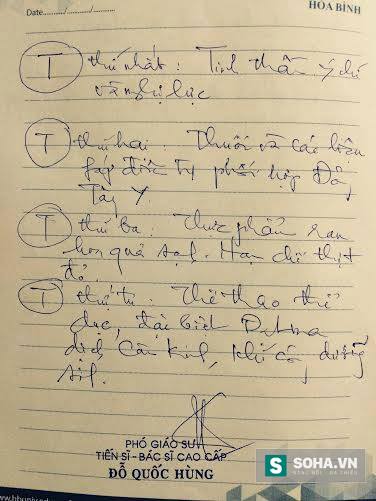 Date........./........../..........
HÒA BÌNH
T thứ nhất: Tinh thần ý chí
và nghị lực
T thứ hai: Thuốc và các biện
pháp điều trị phối hợp Đông
Tây Y.
T thứ ba: Thực phẩm rau
hoa quả sạch. Hạn chế thịt
đỏ
T thứ tư: Thể thao thể
dục, đặc biệt
dịch Cân Kinh, khí công dưỡng
sinh.
PHÓ GIÁO SƯ
TIẾN SĨ - BÁC SĨ CAO CẤP
ĐỖ QUỐC HÙNG
S SOHA.VN